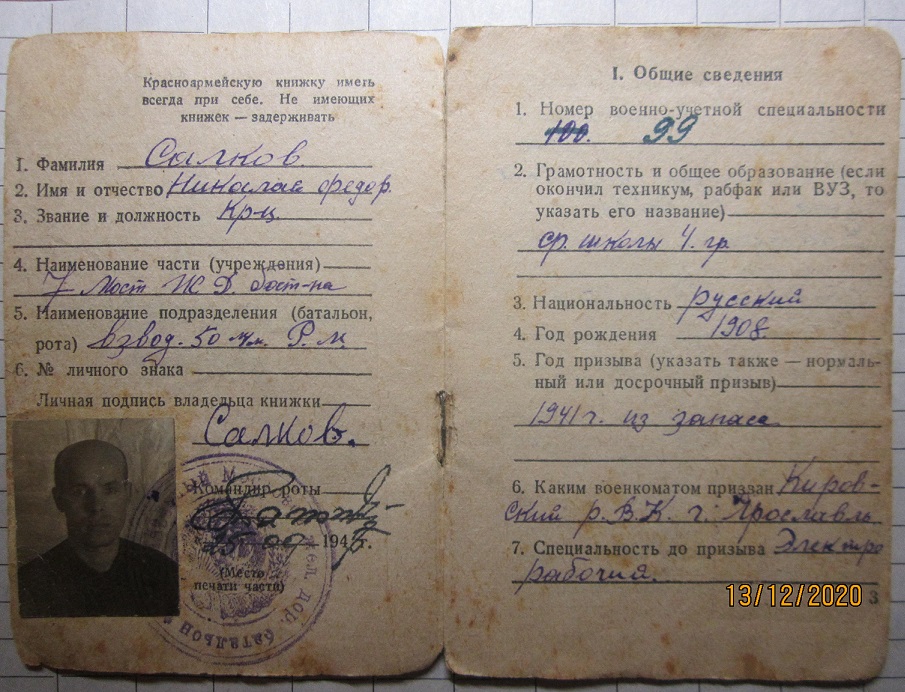 Красноармейскую книжку иметь
всегда при себе. Не имеющих
книжек — задерживать
1. Фамилия Салков
2. Имя и отчество Николай Федор.
3. Звание и должность Кр-ц.
4. Наименование части (учреждения)
7 Мост Ж Д. бат-на
5. Наименование подразделения (батальон,
рота) взвод. 50 мм. Р. м.
6. № личного знака
Личная подпись владельца книжки
Салков.
Командир роты
25 194 г.
(Место
печати части)
жел. дор. батальон
I. Общие сведения
1. Номер военно-учетной специальности
100. 99
2. Грамотность и общее образование (если
окончил техникум, рабфак или ВУЗ, то
указать его название)
ср. школы 4. гр.
3. Национальность русский
4. Год рождения 1908.
5. Год призыва (указать также — нормаль-
ный или досрочный призыв)
1941 г. из запаса
6. Каким военкоматом призван Киров-
ский р. В. К. г. Ярославль
7. Специальность до призыва Электро
рабочий.
13/12/2020
3